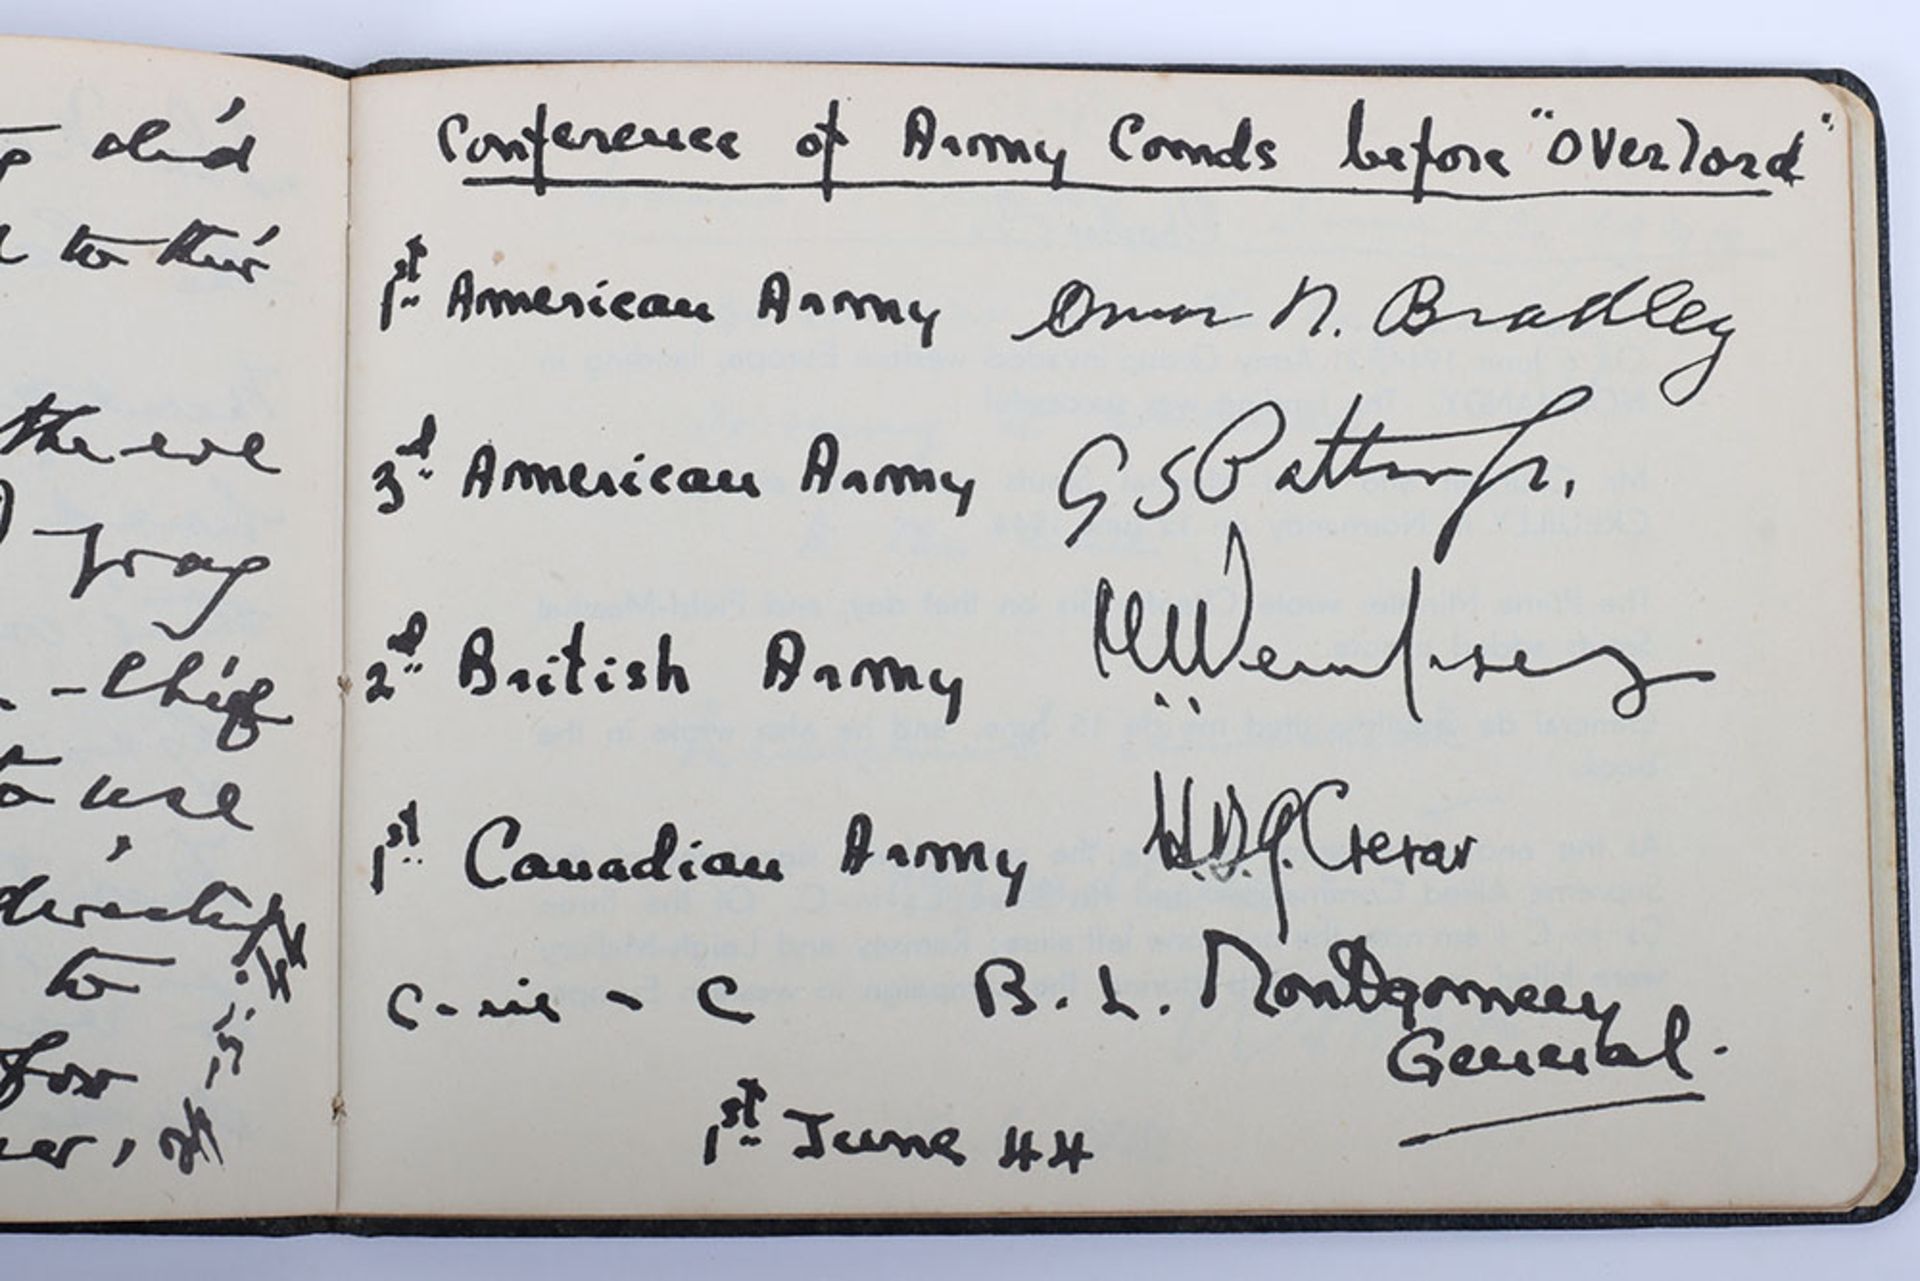 did
to their
the eve
pray
- thief
to use
directly
to
for
Conference of Army Comds before "Overlord"
1st American Army Omar N. Bradley
3d American Army G S Patton Jr.
2d British Army M Dempsey
1st Canadian Army H.D.G. Crerar
C-in-C B. L. Montgomery
General.
1st June 44